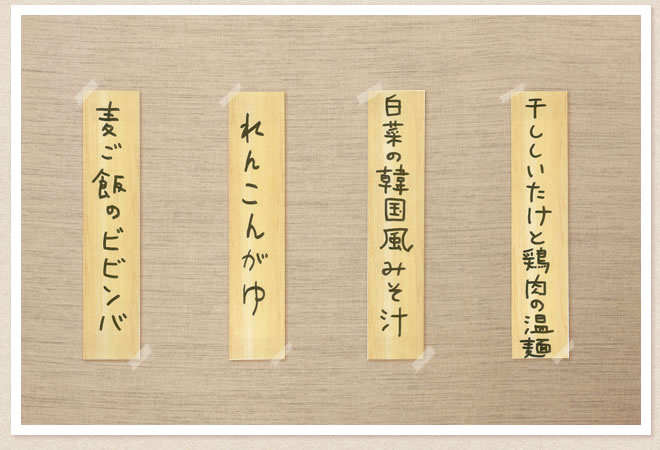 干ししいたけと鶏肉の温麺
白菜の韓国風みそ汁
れんこんがゆ
麦ご飯のビビンバ